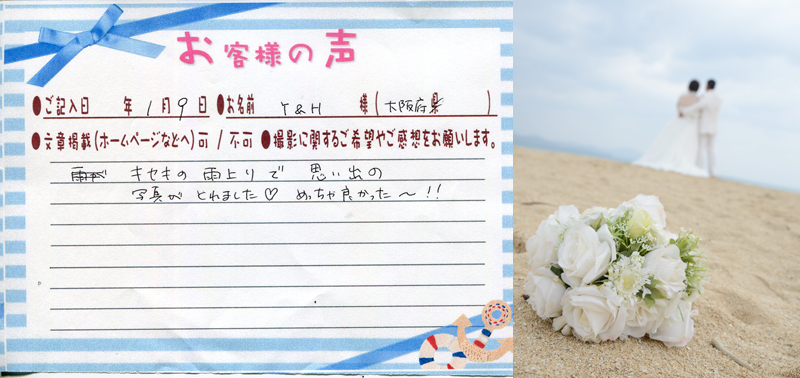 お客様の声
●ご記入日 年 1月9日 ●お名前 Y&H 様(大阪府県)
●文章掲載(ホームページなどへ)可 / 不可 ●撮影に関するご希望やご感想をお願いします。
雨が キセキの雨上りで 思い出の
写真が とれました♡ めっちゃ良かった〜!!